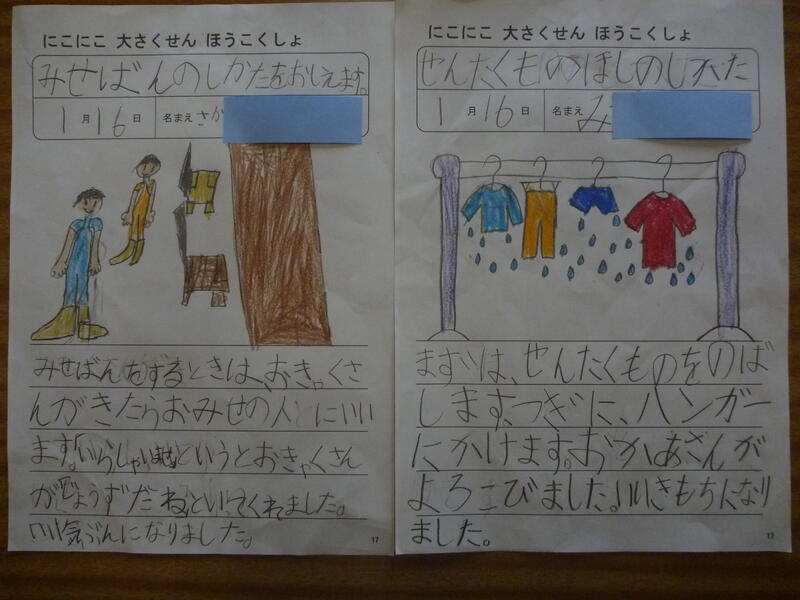 にこにこ 大さくせん ほうこくしょ
みせばんのしかたをおしえます。
1月16日 名まえ さか
みせばんをするときは、おきゃくさ
んがきたらおみせの人とにいい
ます。「いらしゃいませ」というとおきゃくさん
が「じょうずだね」といってくれました。
いい気ぶんになりました。
17
にこにこ 大さくせん ほうこくしょ
せんたくもののほしのしかた
1月16日 名まえ み
まずは、せんたくものをのば
します、つぎに、ハンガー
にかけます。おかあさんが
よろこびました。いいきもちになり
ました。
17